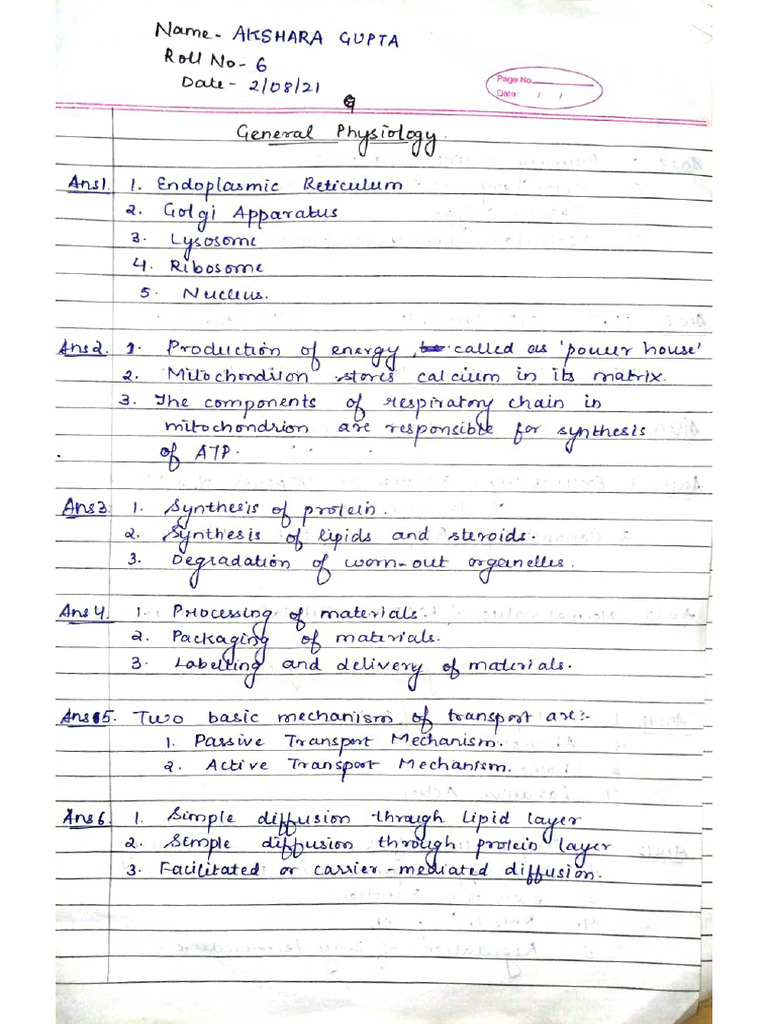 Name - AKSHARA GUPTA
Roll No - 6
Date - 2/08/21
Page No.
Date: / /
General Physiology.
Ans1. 1. Endoplasmic Reticulum
2. Golgi Apparatus
3. Lysosome
4. Ribosome
5. Nucleus.
Ans2. 1. Production of energy, called as 'power house'
2. Mitochondrion stores calcium in its matrix.
3. The components of respiratory chain in
mitochondrion are responsible for synthesis
of ATP.
Ans3. 1. Synthesis of protein.
2. Synthesis of lipids and steroids.
3. Degradation of worn-out organelles.
Ans4. 1. Processing of materials.
2. Packaging of materials.
3. Labelling and delivery of materials.
Ans5. Two basic mechanism of transport are:-
1. Passive Transport Mechanism.
2. Active Transport Mechanism.
Ans6. 1. Simple diffusion through lipid layer
2. Simple diffusion through protein layer
3. Facilitated or carrier-mediated diffusion.